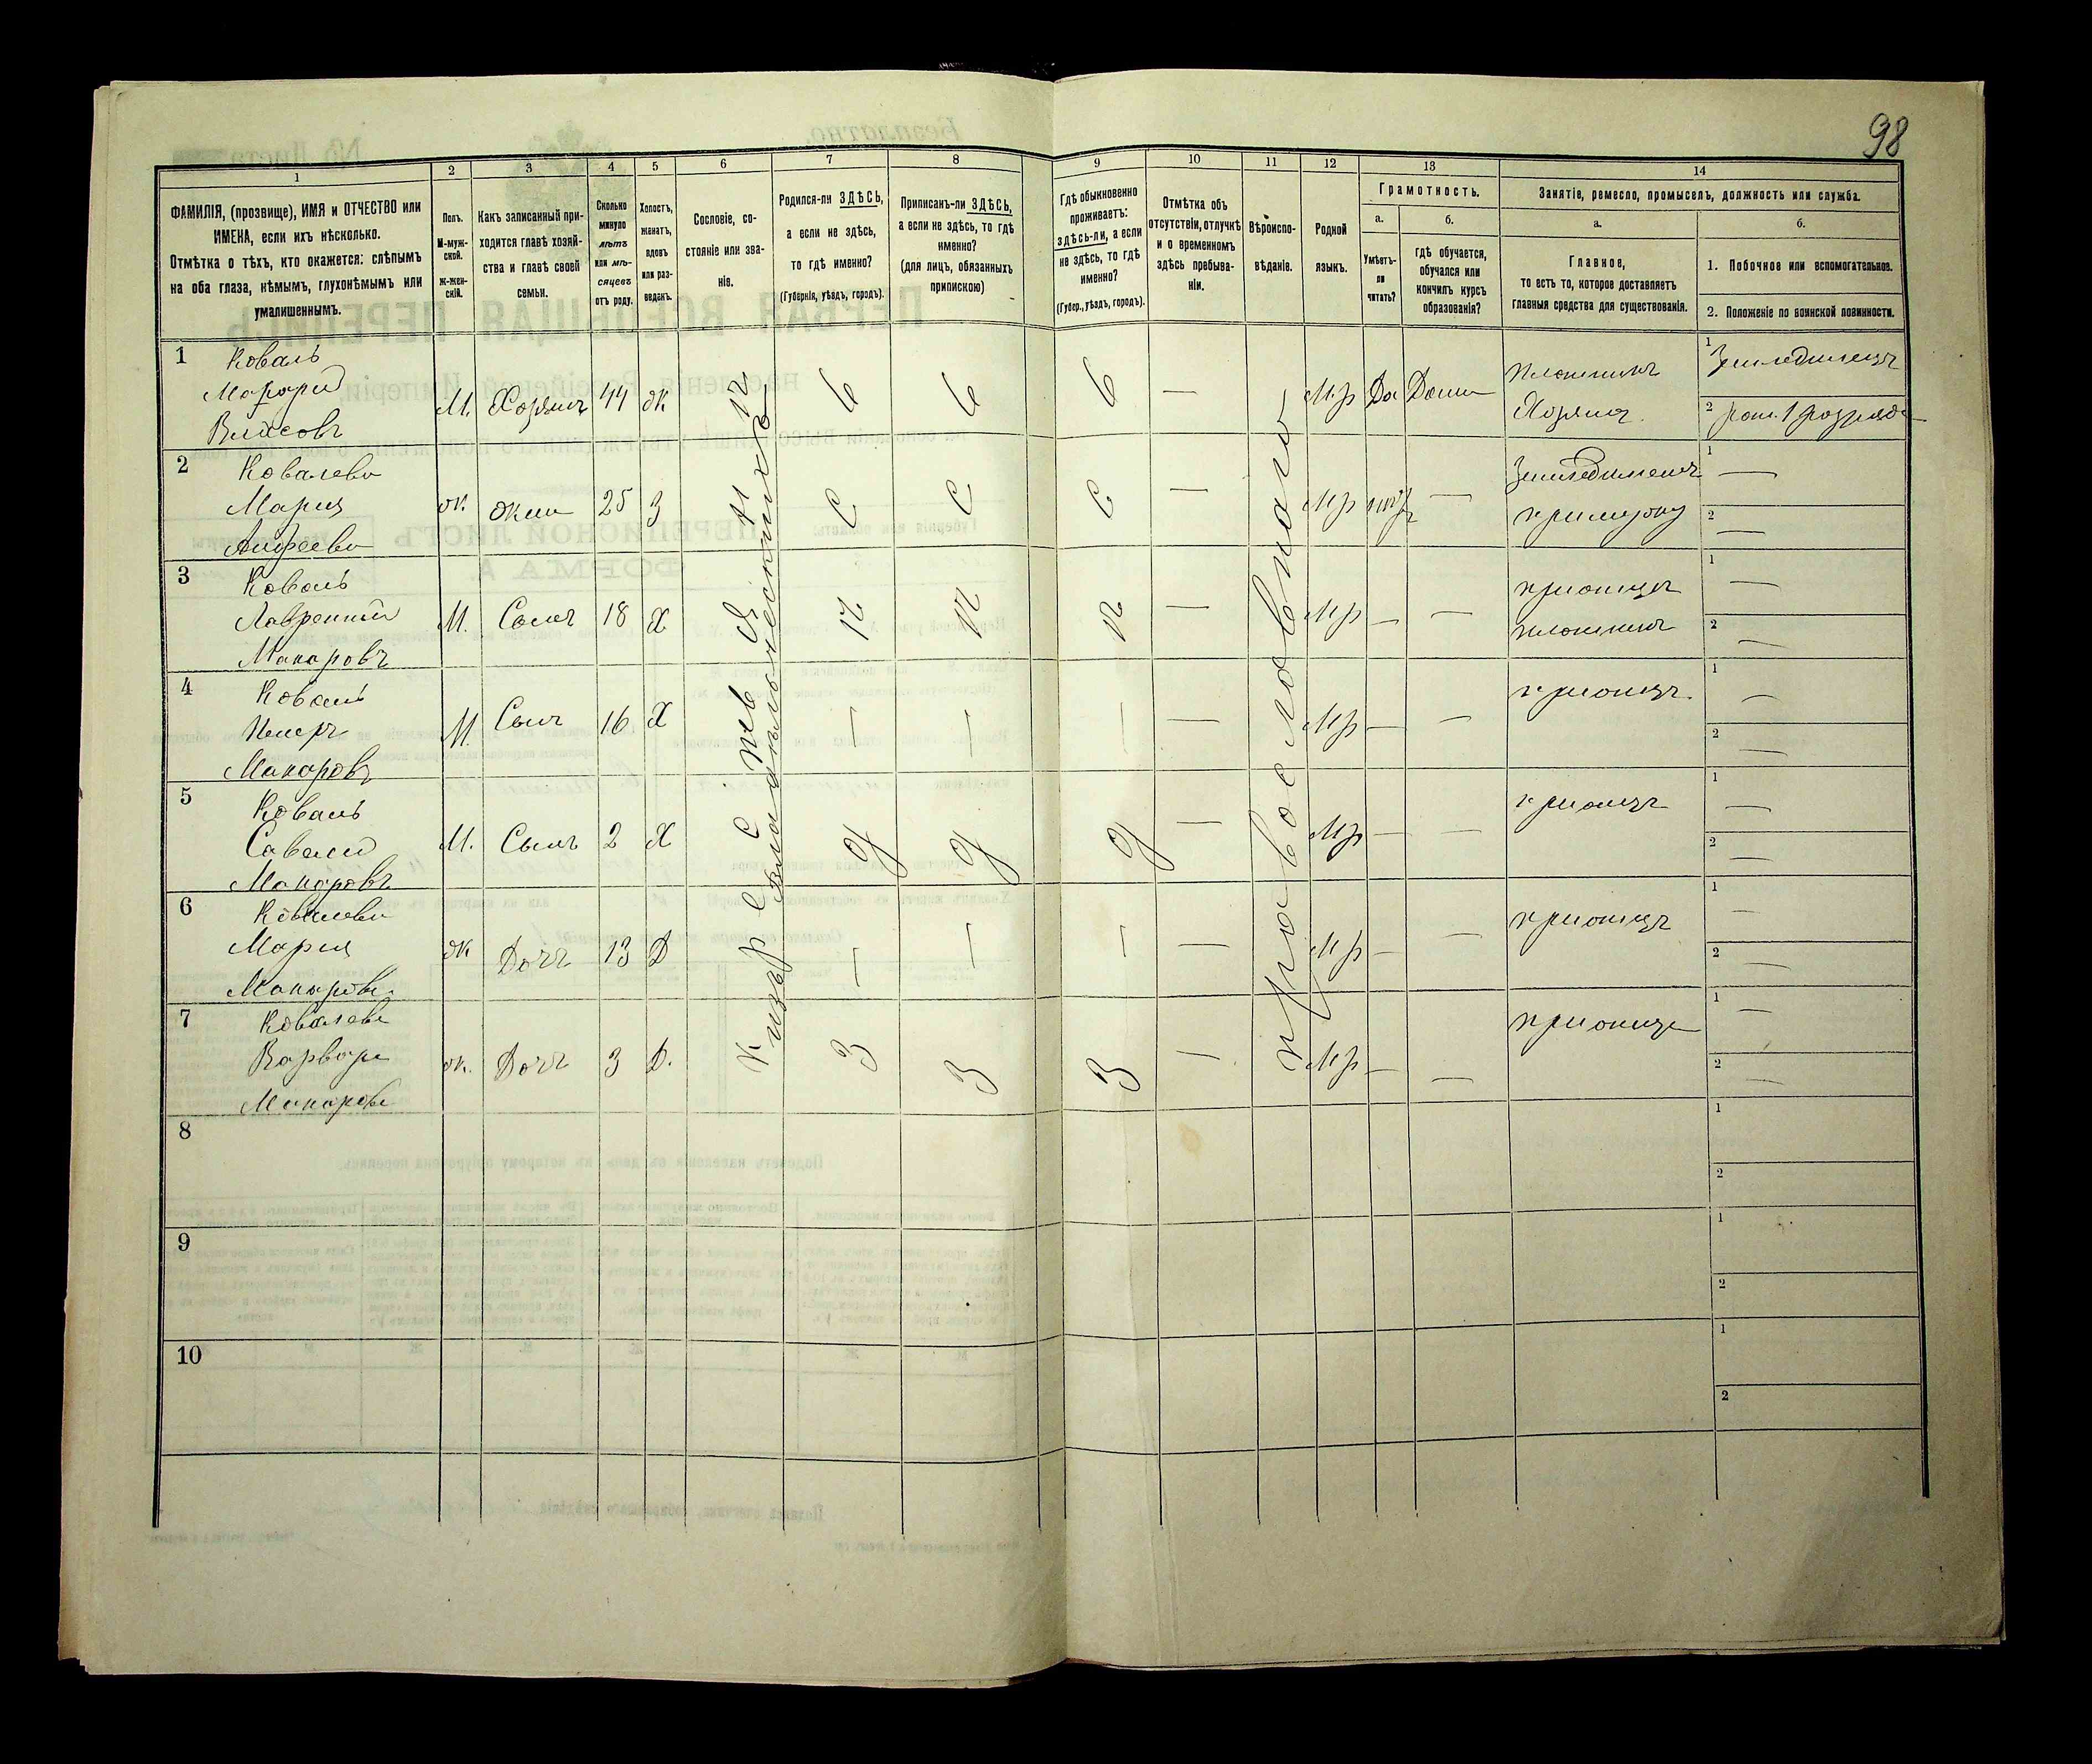 98
1 2 3 4 5 6 7 8 9 10 11 12 13 14
ФАМИЛІЯ, (прозвище), ИМЯ и ОТЧЕСТВО или
ИМЕНА, если ихъ нѣсколько.
Отмѣтка о тѣхъ, кто окажется: слѣпымъ
на оба глаза, нѣмымъ, глухонѣмымъ или
умалишеннымъ.
Полъ.
М-муж-
ской.
Ж-жен-
скій.
Какъ записанный при-
ходится главѣ хозяй-
ства и главѣ своей
семьи.
Сколько
минуло
лѣтъ
или мѣ-
сяцевъ
отъ роду.
Холостъ,
женатъ,
вдовъ
или раз-
веденъ.
Сословіе, со-
стояніе или зва-
ніе.
Родился-ли ЗДѢСЬ,
а если не здѣсь,
то гдѣ именно?
(Губернія, уѣздъ, городъ).
Приписанъ-ли ЗДѢСЬ,
а если не здѣсь, то гдѣ
именно?
(для лицъ, обязанныхъ
припискою)
Гдѣ обыкновенно
проживаетъ:
здѣсь-ли, а если
не здѣсь, то гдѣ
именно?
(Губер., уѣздъ, городъ).
Отмѣтка объ
отсутствіи, отлучкѣ
и о временномъ
здѣсь пребыва-
ніи.
Вѣроиспо-
вѣданіе.
Родной
языкъ.
Грамотность.
а.
Умѣетъ-
ли
читать?
б.
гдѣ обучается,
обучался или
кончилъ курсъ
образованія?
Занятіе, ремесло, промыселъ, должность или служба.
а.
Главное,
то есть то, которое доставляетъ
главныя средства для существованія.
б.
1. Побочное или вспомогательное.
2. Положеніе по воинской повинности.
1 Коваль
Власовъ
М. Хозяинъ 44 Ж М.р Да Дома
Плотникъ
Хозяинъ
1 Земледѣлецъ
2 рат. 1 разряда
2 Ковалева
Мария
Андреева
ж. жена 25 З — М.р нѣтъ —
при мужу
1 —
2 —
3 Коваль
Лаврентій
Макаровъ
М. Сынъ 18 Х — М.р — —
при отцѣ
плотникъ
1 —
2 —
4 Коваль
Петръ
Макаровъ
М. Сынъ 16 Х — — — — М.р — —
при отцѣ
1 —
2 —
5 Коваль
Савелий
Макаровъ
М. Сынъ 2 Х — М.р — —
при отцѣ
1 —
2 —
6 Ковалева
Мария
Макарова
ж Дочь 13 Д — — — — М.р — —
при отцѣ
1 —
2 —
7 Ковалева
Варвара
Макарова
ж. Дочь 3 Д. — М.р — —
при отце
1 —
2 —
8
1
2
9
1
2
10
1
2
З д ѣ с ь
З д ѣ с ь
З д ѣ с ь
православнаго